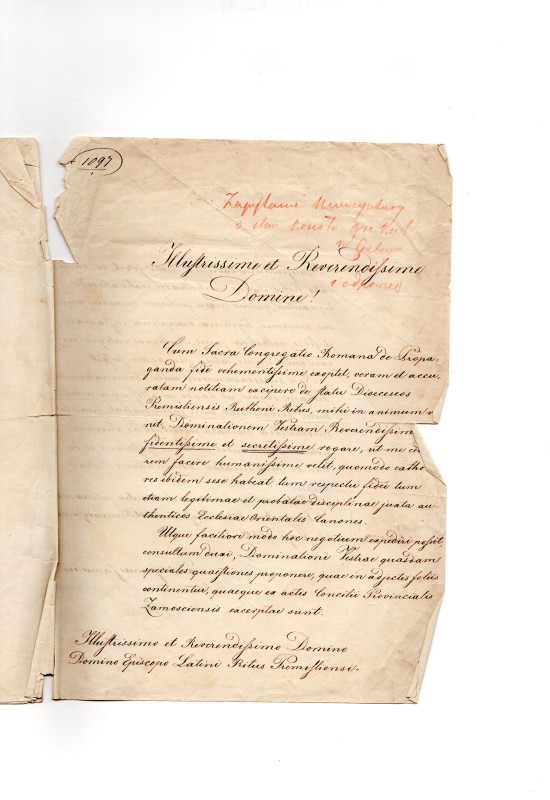 1097
Zapytanie Nuncyatury
o stan
Illustrissime et Reverendissime
Domine!
Cum Sacra Congregatio Romana de Propa-
ganda fide vehementissime exoptet, veram et accu-
ratam notitiam excipere de statu Dioeceseos
Premisliensis Rutheni Ritus, mihi in animum v
nit, Dominationem Vestram Reverendissim
fidentissime et secretissime rogare, ut me ce
rem facere humanissime velit, quomodo catho
res ibidem sese habeat tum respectu fidei tum
etiam legitimae et probatae disciplinae juxta au-
thenticos Ecclesiae Orientalis Canones.
Utque faciliore modo hoc negotium expediri possit
consultum duxi, Dominationi Vestrae quasdam
speciales quaestiones proponere, quae in adjectis foliis
continentur, quaeque ex actis Concilii Provincialis
Zamosciensis excerptae sunt.
Illustrissimo et Reverendissimo Domino
Domino Episcopo Latini Ritus Premisliensi.